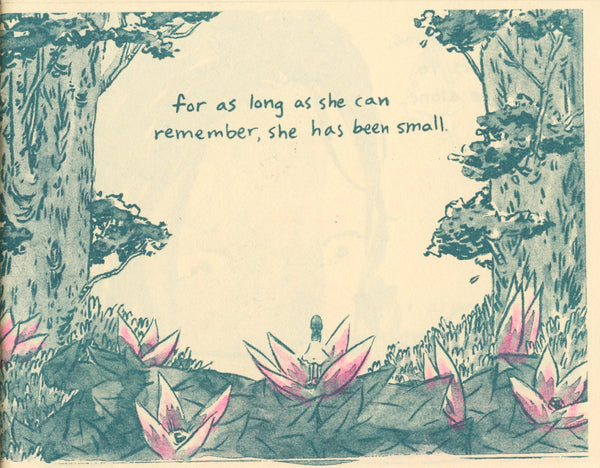 for as long as she can
remember, she has been small.